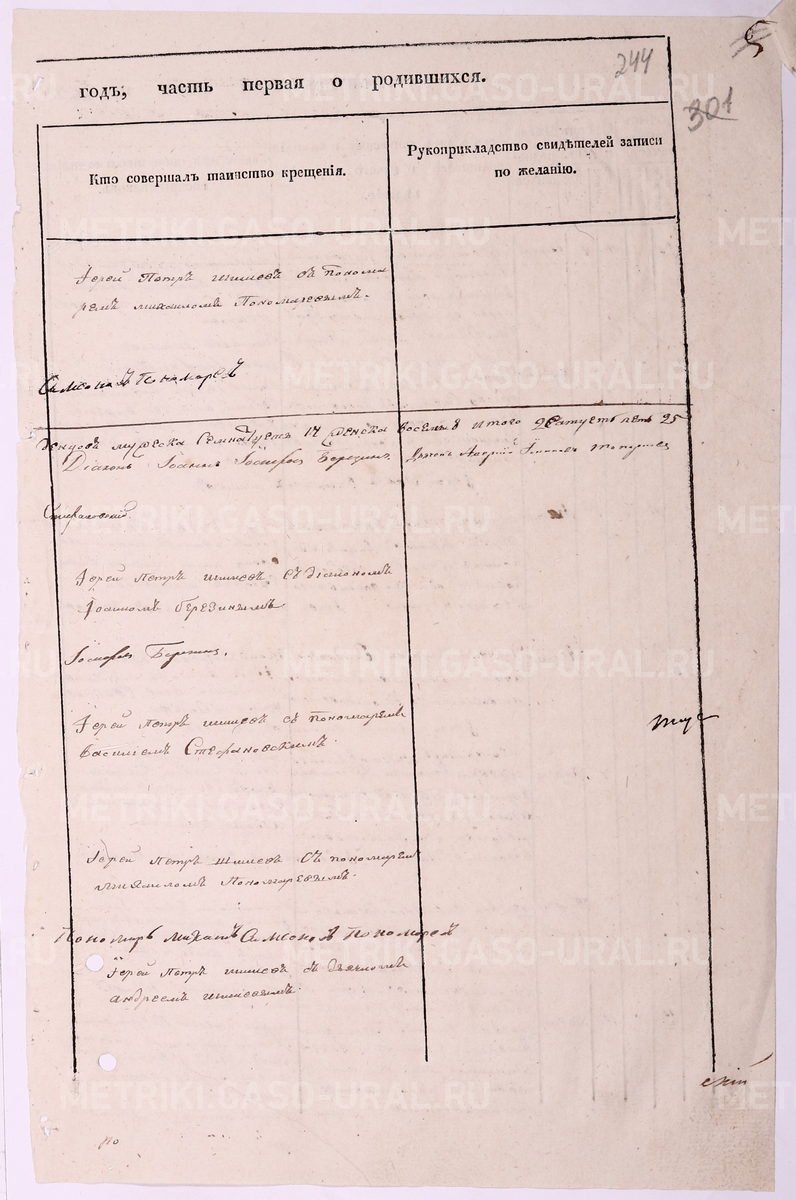 244
301
5
годъ, часть первая о родившихся.
Кто совершалъ таинство крещенія.
Рукоприкладство свидѣтелей записи
по желанію.
Іерей Петръ Шишевъ съ понома
ремъ Михаиломъ Пономаревымъ.
Симеоновъ Пономаревъ
мужеска семнатцеть 17 женска восемь 8 итого 25
Діаконъ Іоаннъ Іосифовъ Березинъ.
Стефановскій.
Іерей Петръ Шишевъ съ діакономъ
Іоанномъ Березинымъ
Іосифовъ Березинъ.
Іерей Петръ Шишевъ съ пономаремъ
Василіемъ Стефановскимъ.
Іерей Петръ Шишевъ съ пономаремъ
Михаиломъ Пономаревымъ.
Пономарь Михаилъ Симеоновъ Пономаревъ
Іерей Петръ Шишевъ съ дьячкомъ
Андреемъ
METRIKI.GASO-URAL.RU